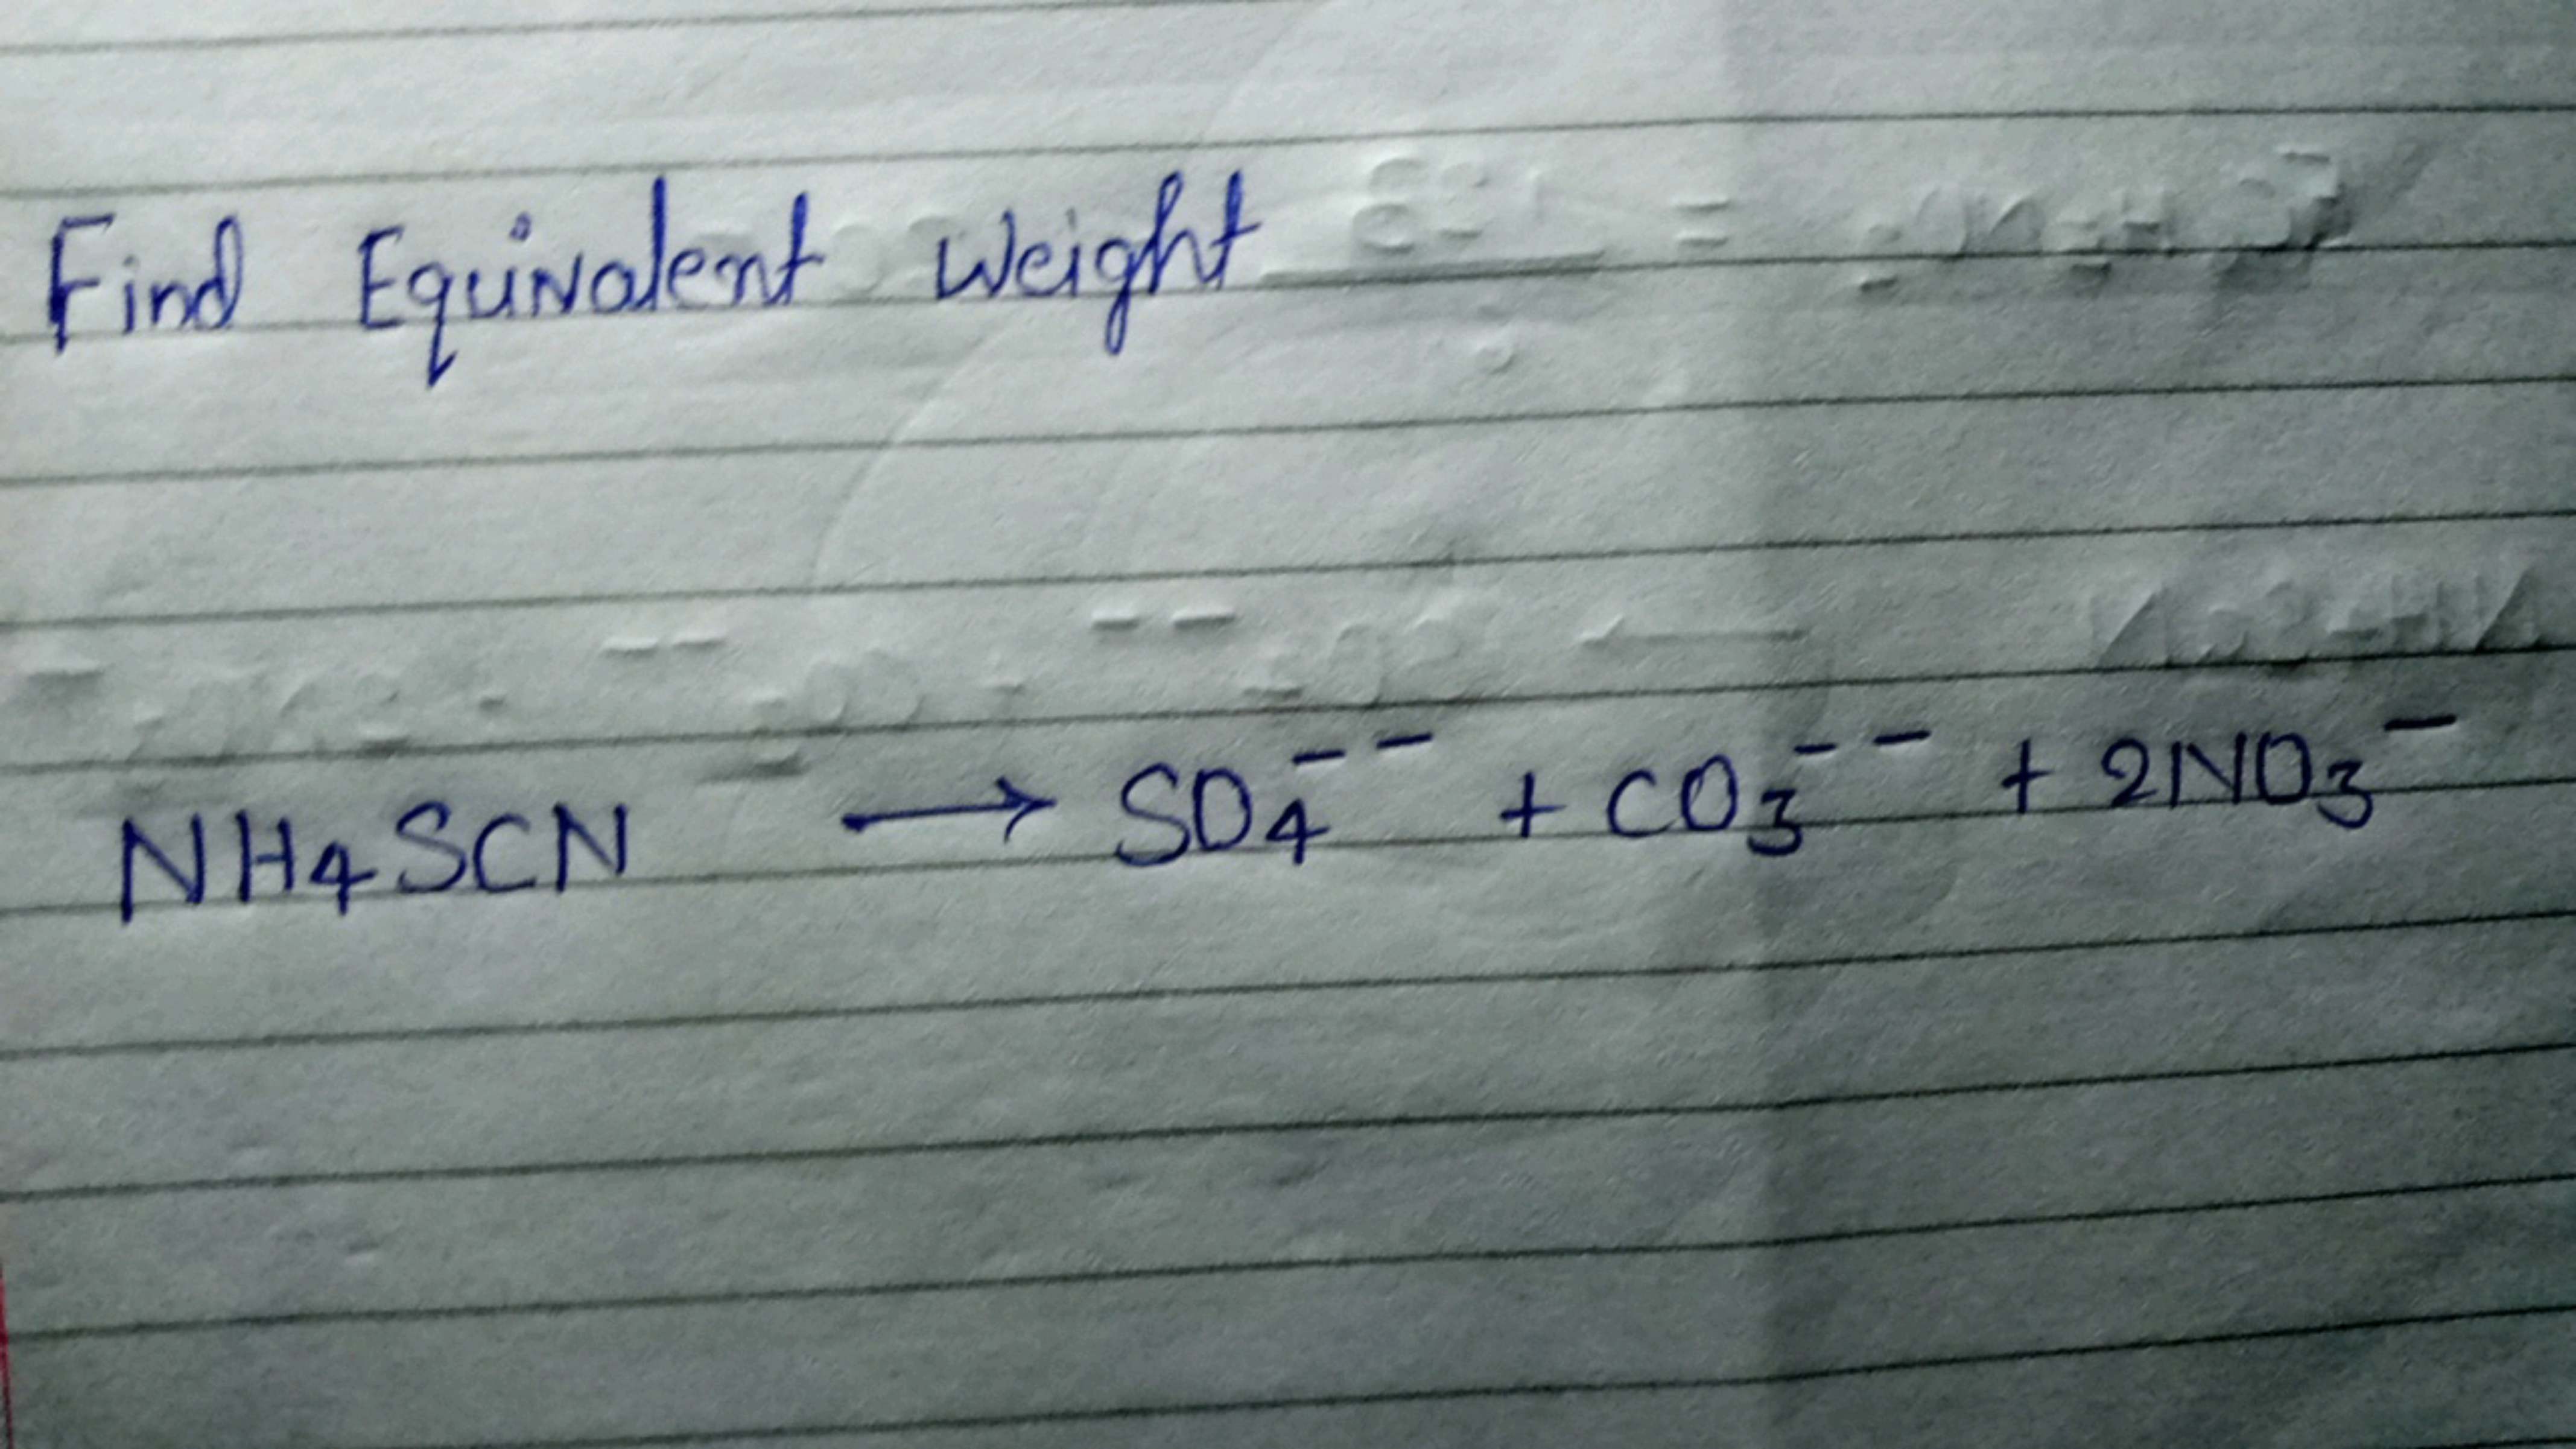 Find Equivalent Weight
NH₄SCN ⟶ SO₄⁻⁻ + CO₃⁻⁻ + 2NO₃⁻